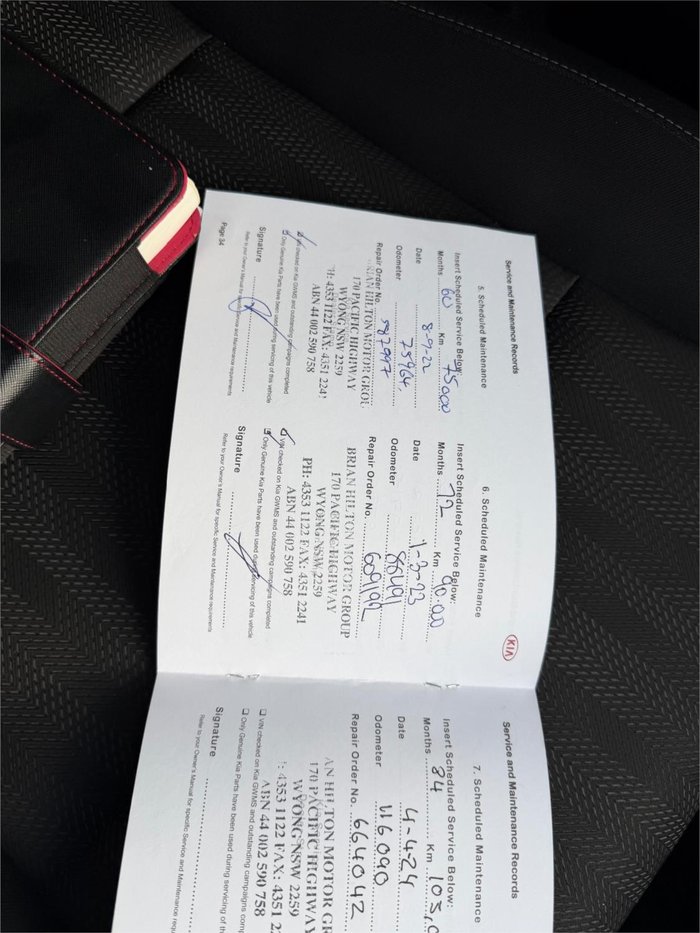 Service and Maintenance Records
5. Scheduled Maintenance
Insert Scheduled Service Below:
Months 60 Km 75000
Date 8-9-22
Odometer 75964
Repair Order No. 587997
BRIAN HILTON MOTOR GROU
170 PACIFIC HIGHWAY
WYONG NSW 2259
PH: 4353 1122 FAX: 4351 2241
ABN 44 002 590 758
VIN checked on Kia GWMS and outstanding campaigns completed
Only Genuine Kia Parts have been used during servicing of this vehicle
Signature
Refer to your Owner's Manual for specific Service and Maintenance requirements
Page 34
6. Scheduled Maintenance
Insert Scheduled Service Below:
Months 72 Km 90.000
Date 1-3-23
Odometer 88491
Repair Order No. 609192
BRIAN HILTON MOTOR GROUP
170 PACIFIC HIGHWAY
WYONG NSW 2259
PH: 4353 1122 FAX: 4351 2241
ABN 44 002 590 758
VIN checked on Kia GWMS and outstanding campaigns completed
Only Genuine Kia Parts have been used during servicing of this vehicle
Signature
Refer to your Owner's Manual for specific Service and Maintenance requirements
KIA
Service and Maintenance Records
7. Scheduled Maintenance
Insert Scheduled Service Below:
Months 84 Km 105,0
Date 4-4-24
Odometer 116090
Repair Order No. 664042
AN HILTON MOTOR GR
170 PACIFIC HIGHWAY
WYONG NSW 2259
: 4353 1122 FAX: 4351 2
ABN 44 002 590 758
VIN checked on Kia GWMS and outstanding campaigns com
Only Genuine Kia Parts have been used during servicing of
Signature
Refer to your Owner's Manual for specific Service and Maintenance requ